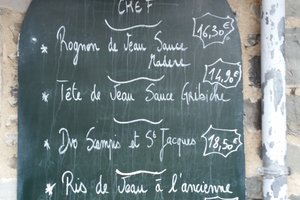 CHEF
* Rognon de Veau Sauce
Madere
16,30€
* Tête de Veau Sauce Gribiche
14,90€
* Duo Scampis et St Jacques
18,50€
* Ris de Veau à l'ancienne